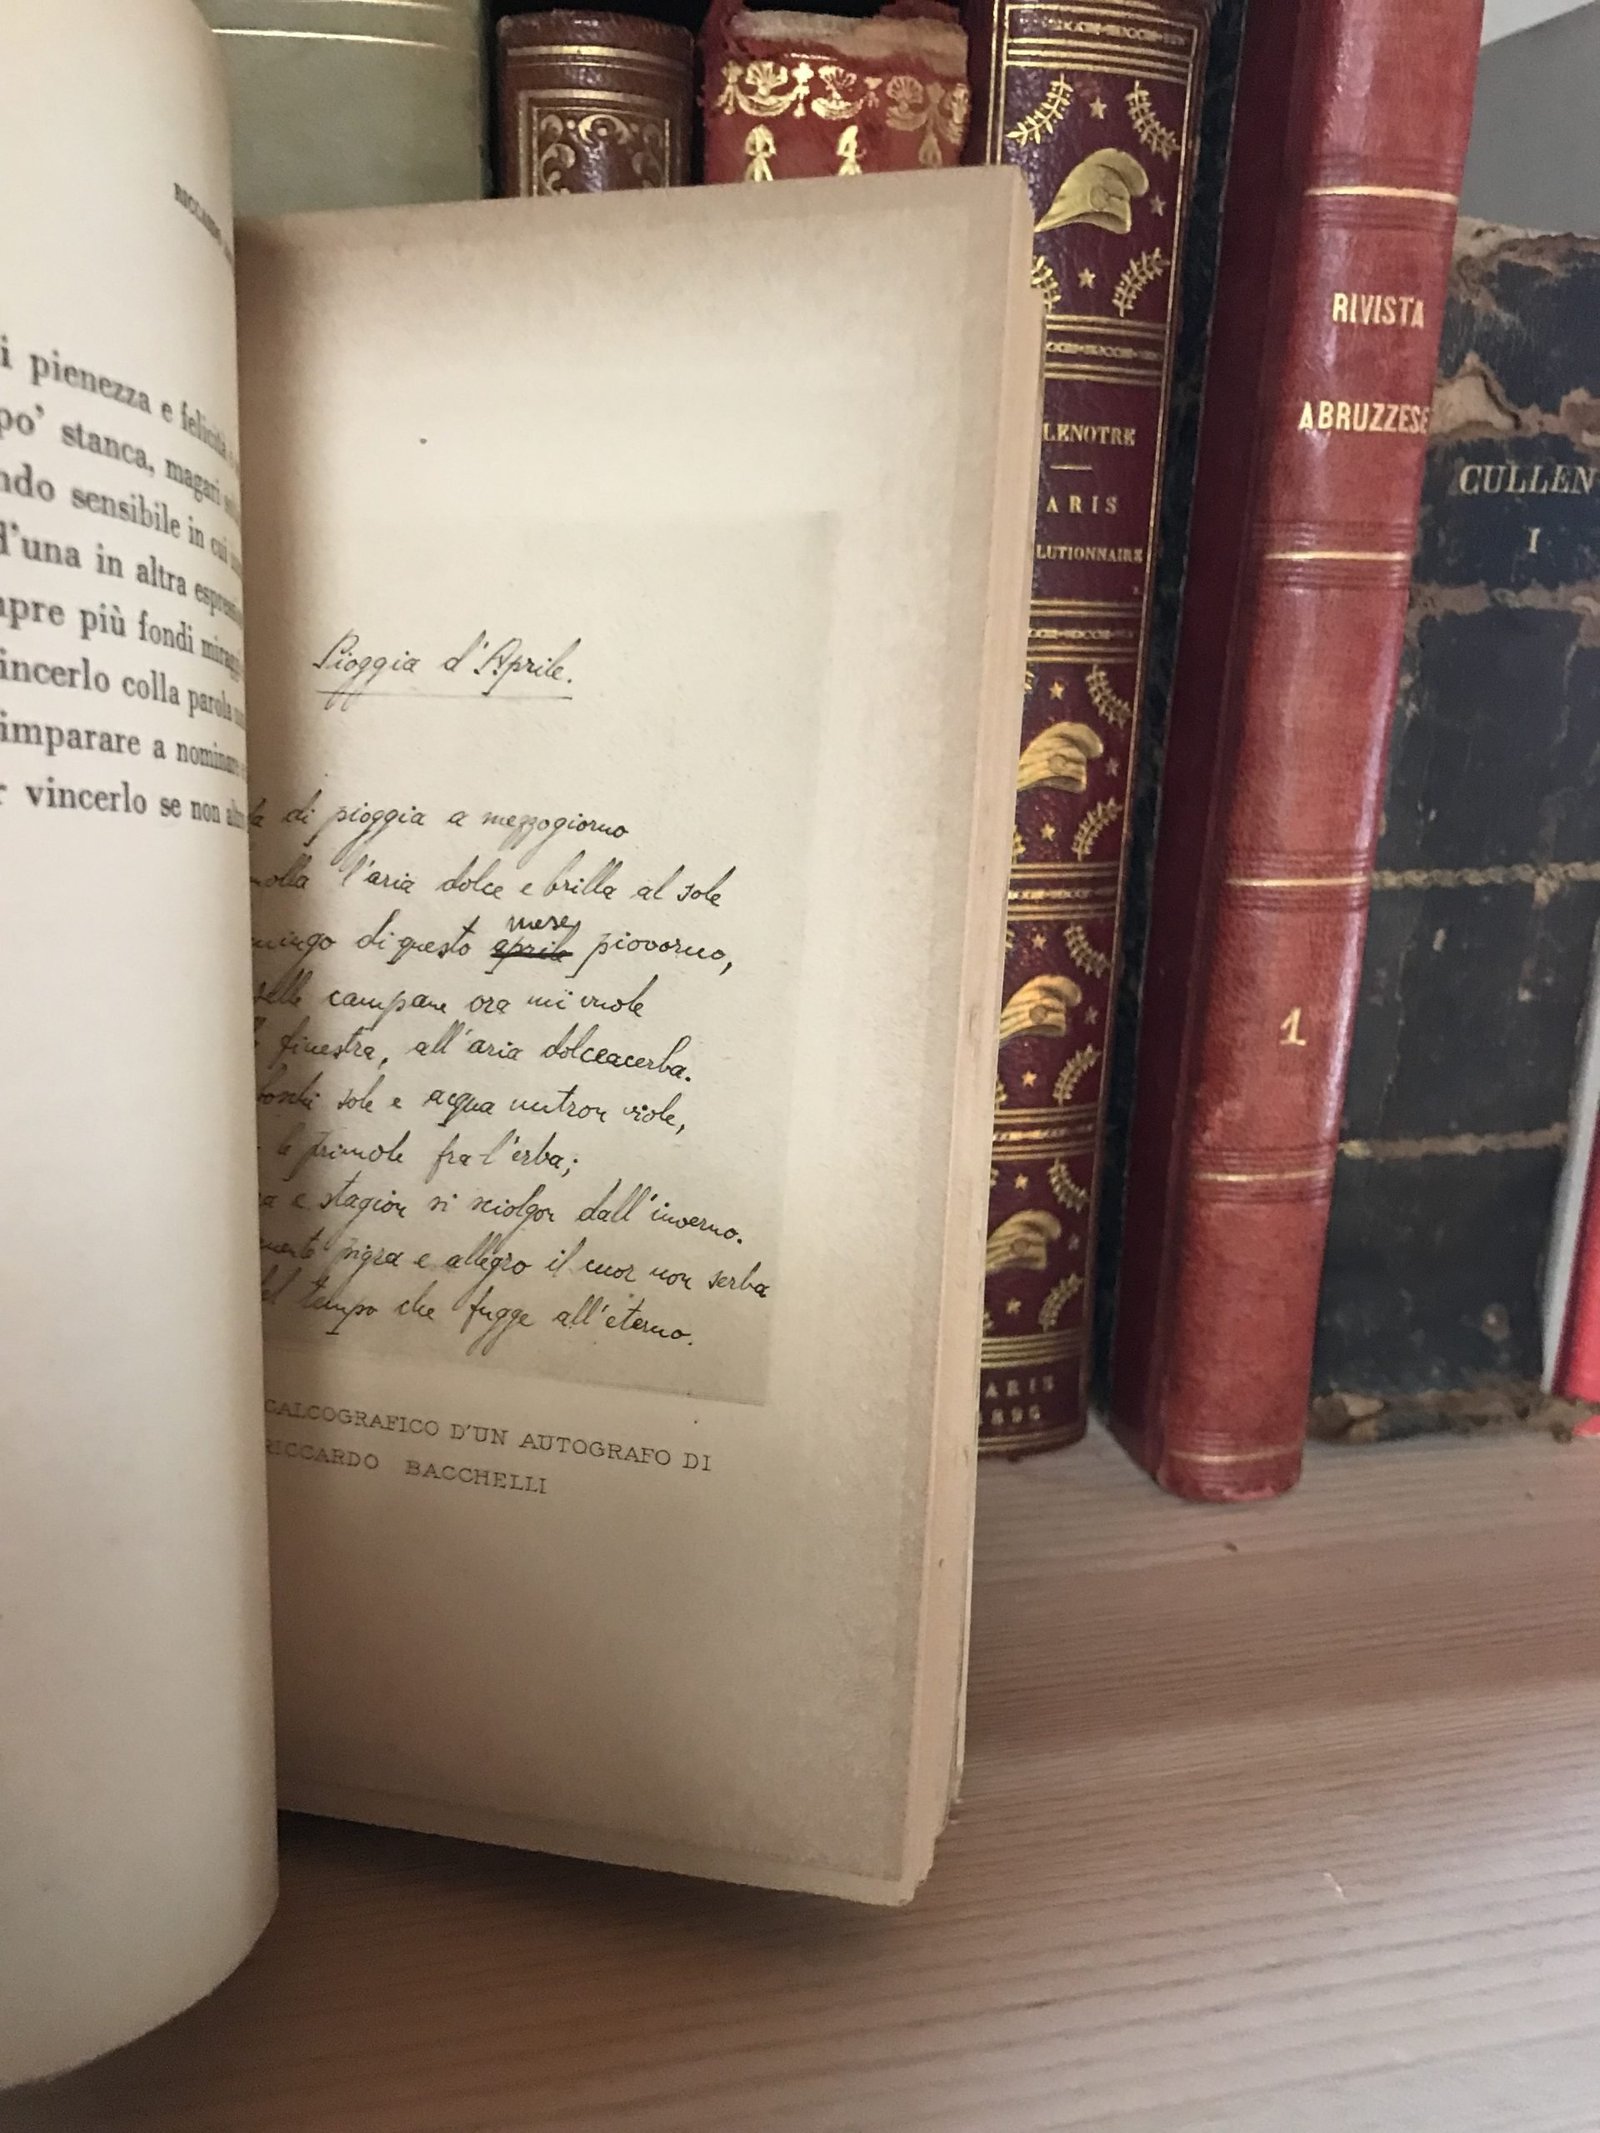 i pienezza e felicità
po' stanca, magari
ndo sensibile in cui
d'una in altra
mpre più fondi
incerlo colla parola
imparare a
r vincerlo se non
Pioggia d'Aprile.
di pioggia a mezzogiorno
molla l'aria dolce e brilla al sole
mese
mingo di questo aprile piovorno,
delle campane ora mi vuole
finestra, all'aria dolceacerba.
boschi sole e acqua nutron viole,
le primole fra l'erba;
e stagion si sciolgon dall'inverno.
pigra e allegro il cuor non serba
del tempo che fugge all'eterno.
CALCOGRAFICO D'UN AUTOGRAFO DI
RICCARDO BACCHELLI
LENOTRE
ARIS
LUTIONNAIRE
ARIS
1896
RIVISTA
ABRUZZESE
1
CULLEN
I